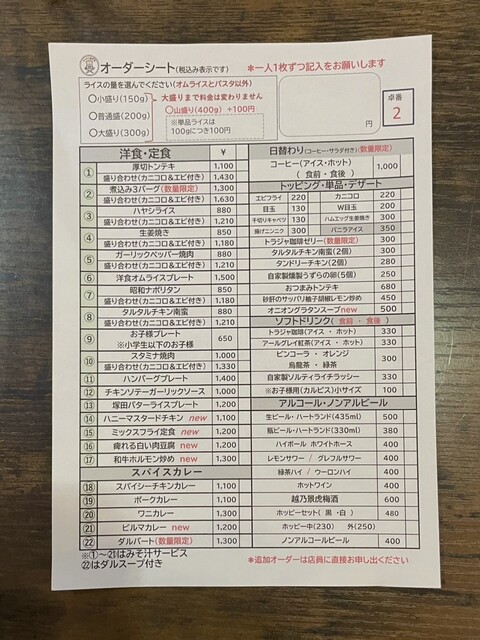 オーダーシート(税込み表示です)
*一人1枚ずつ記入をお願いします
ライスの量を選んでください(オムライスとパスタ以外)
〇小盛り(150g)
〇普通盛(200g)
〇大盛り(300g)
大盛りまで料金は変わりません
〇山盛り(400g) +100円
※単品ライスは
100gにつき100円
円
卓番
2
洋食・定食 ¥
① 厚切トンテキ 1,100
盛り合わせ(カニコロ&エビ付き) 1,430
② 煮込み3バーグ(数量限定) 1,300
盛り合わせ(カニコロ&エビ付き) 1,630
③ ハヤシライス 880
盛り合わせ(カニコロ&エビ付き) 1,210
④ 生姜焼き 850
盛り合わせ(カニコロ&エビ付き) 1,180
⑤ ガーリックペッパー焼肉 880
盛り合わせ(カニコロ&エビ付き) 1,210
⑥ 洋食オムライスプレート 1,500
⑦ 昭和ナポリタン 850
盛り合わせ(カニコロ&エビ付き) 1,180
⑧ タルタルチキン南蛮 880
盛り合わせ(カニコロ&エビ付き) 1,210
⑨ お子様プレート
※小学生以下のお子様 650
⑩ スタミナ焼肉 1,000
盛り合わせ(カニコロ&エビ付き) 1,330
⑪ ハンバーグプレート 1,400
⑫ チキンソテーガーリックソース 1,000
⑬ 塚田バターライスプレート 1,200
⑭ ハニーマスタードチキン new 1,100
⑮ ミックスフライ定食 new 1,200
⑯ 痺れる白い肉豆腐 new 1,100
⑰ 和牛ホルモン炒め new 1,300
スパイスカレー
⑱ スパイシーチキンカレー 1,100
⑲ ポークカレー 1,100
⑳ ワニカレー 1,300
㉑ ビルマカレー new 1,200
㉒ ダルバート(数量限定) 1,300
※①～㉑はみそ汁サービス
㉒はダルスープ付き
日替わり(コーヒー・サラダ付き)(数量限定)
コーヒー(アイス・ホット)
( 食前 ・ 食後 ) 1,000
トッピング・単品・デザート
エビフライ 220 カニコロ 220
目玉 130 W目玉 200
千切りキャベツ 130 ハムエッグ生姜焼き 300
揚げニンニク 300 バニラアイス 350
トラジャ珈琲ゼリー(数量限定) 300
タルタルチキン南蛮(2個) 300
タンドリーチキン(2個) 280
自家製燻製うずらの卵(5個) 250
おつまみトンテキ 680
砂肝のサッパリ柚子胡椒レモン炒め 450
オニオングラタンスープnew 500
ソフトドリンク( 食前 ・ 食後 )
トラジャ珈琲(アイス ・ ホット) 330
アールグレイ紅茶(アイス ・ ホット) 330
ピンコーラ ・ オレンジ
烏龍茶 ・ 緑茶 300
自家製ソルティライチラッシー 330
※お子様用(カルピス)小サイズ 100
アルコール・ノンアルビール
生ビール・ハートランド(435ml) 500
瓶ビール・ハートランド(330ml) 380
ハイボール ホワイトホース 400
レモンサワー / グレフルサワー 400
緑茶ハイ / ウーロンハイ 400
ホットワイン 400
越乃景虎梅酒 600
ホッピーセット( 黒 ・白 ) 480
ホッピー中(230) 外(250)
ノンアルコールビール 400
*追加オーダーは店員に直接お申し出ください